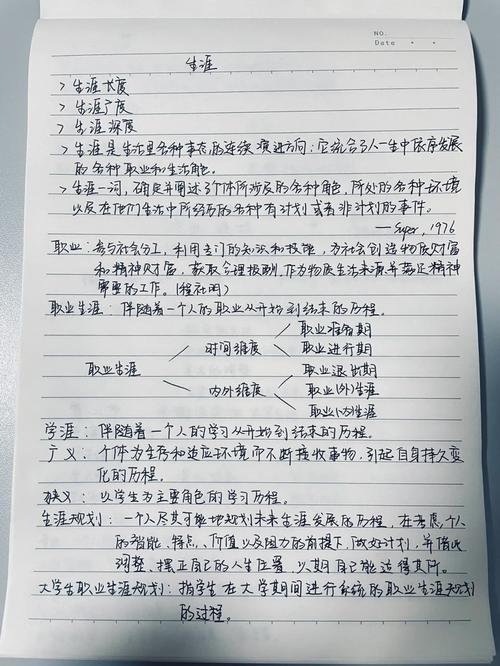 NO.
Date
生涯
> 生涯长度
> 生涯广度
> 生涯深度
> 生涯是生活里各种事态的连续演进方向；它统合了人一生中依序发展
的各种职业和生活角色。
> 生涯一词，确定并阐述了个体所涉及的各种角色、所处的各种环境
以及在他们生活中所经历的各种有计划或者非计划的事件。
——Super，1976
职业：参与社会分工，利用专门的知识和技能，为社会创造物质财富
和精神财富，获取合理报酬，作为物质生活来源并满足精神
需要的工作。（程社明）
职业生涯：伴随着一个人的职业从开始到结束的历程。
职业准备期
时间维度 职业进行期
职业生涯 职业退出期
内外维度 职业(外)生涯
职业(内)生涯
学涯：伴随着一个人的学习从开始到结束的历程。
广义：个体为生存和适应环境而不断接收事物，引起自身持久变
化的历程。
狭义：以学生为主要角色的学习历程。
生涯规划：一个人尽其可能地规划未来生涯发展的历程，在考虑个人
的智能、特点、价值以及阻力的前提下，做好计划，并借此
调整、摆正自己的人生位置，以期自己能适得其所。
大学生职业生涯规划：指学生在大学期间进行系统的职业生涯规划
的过程。